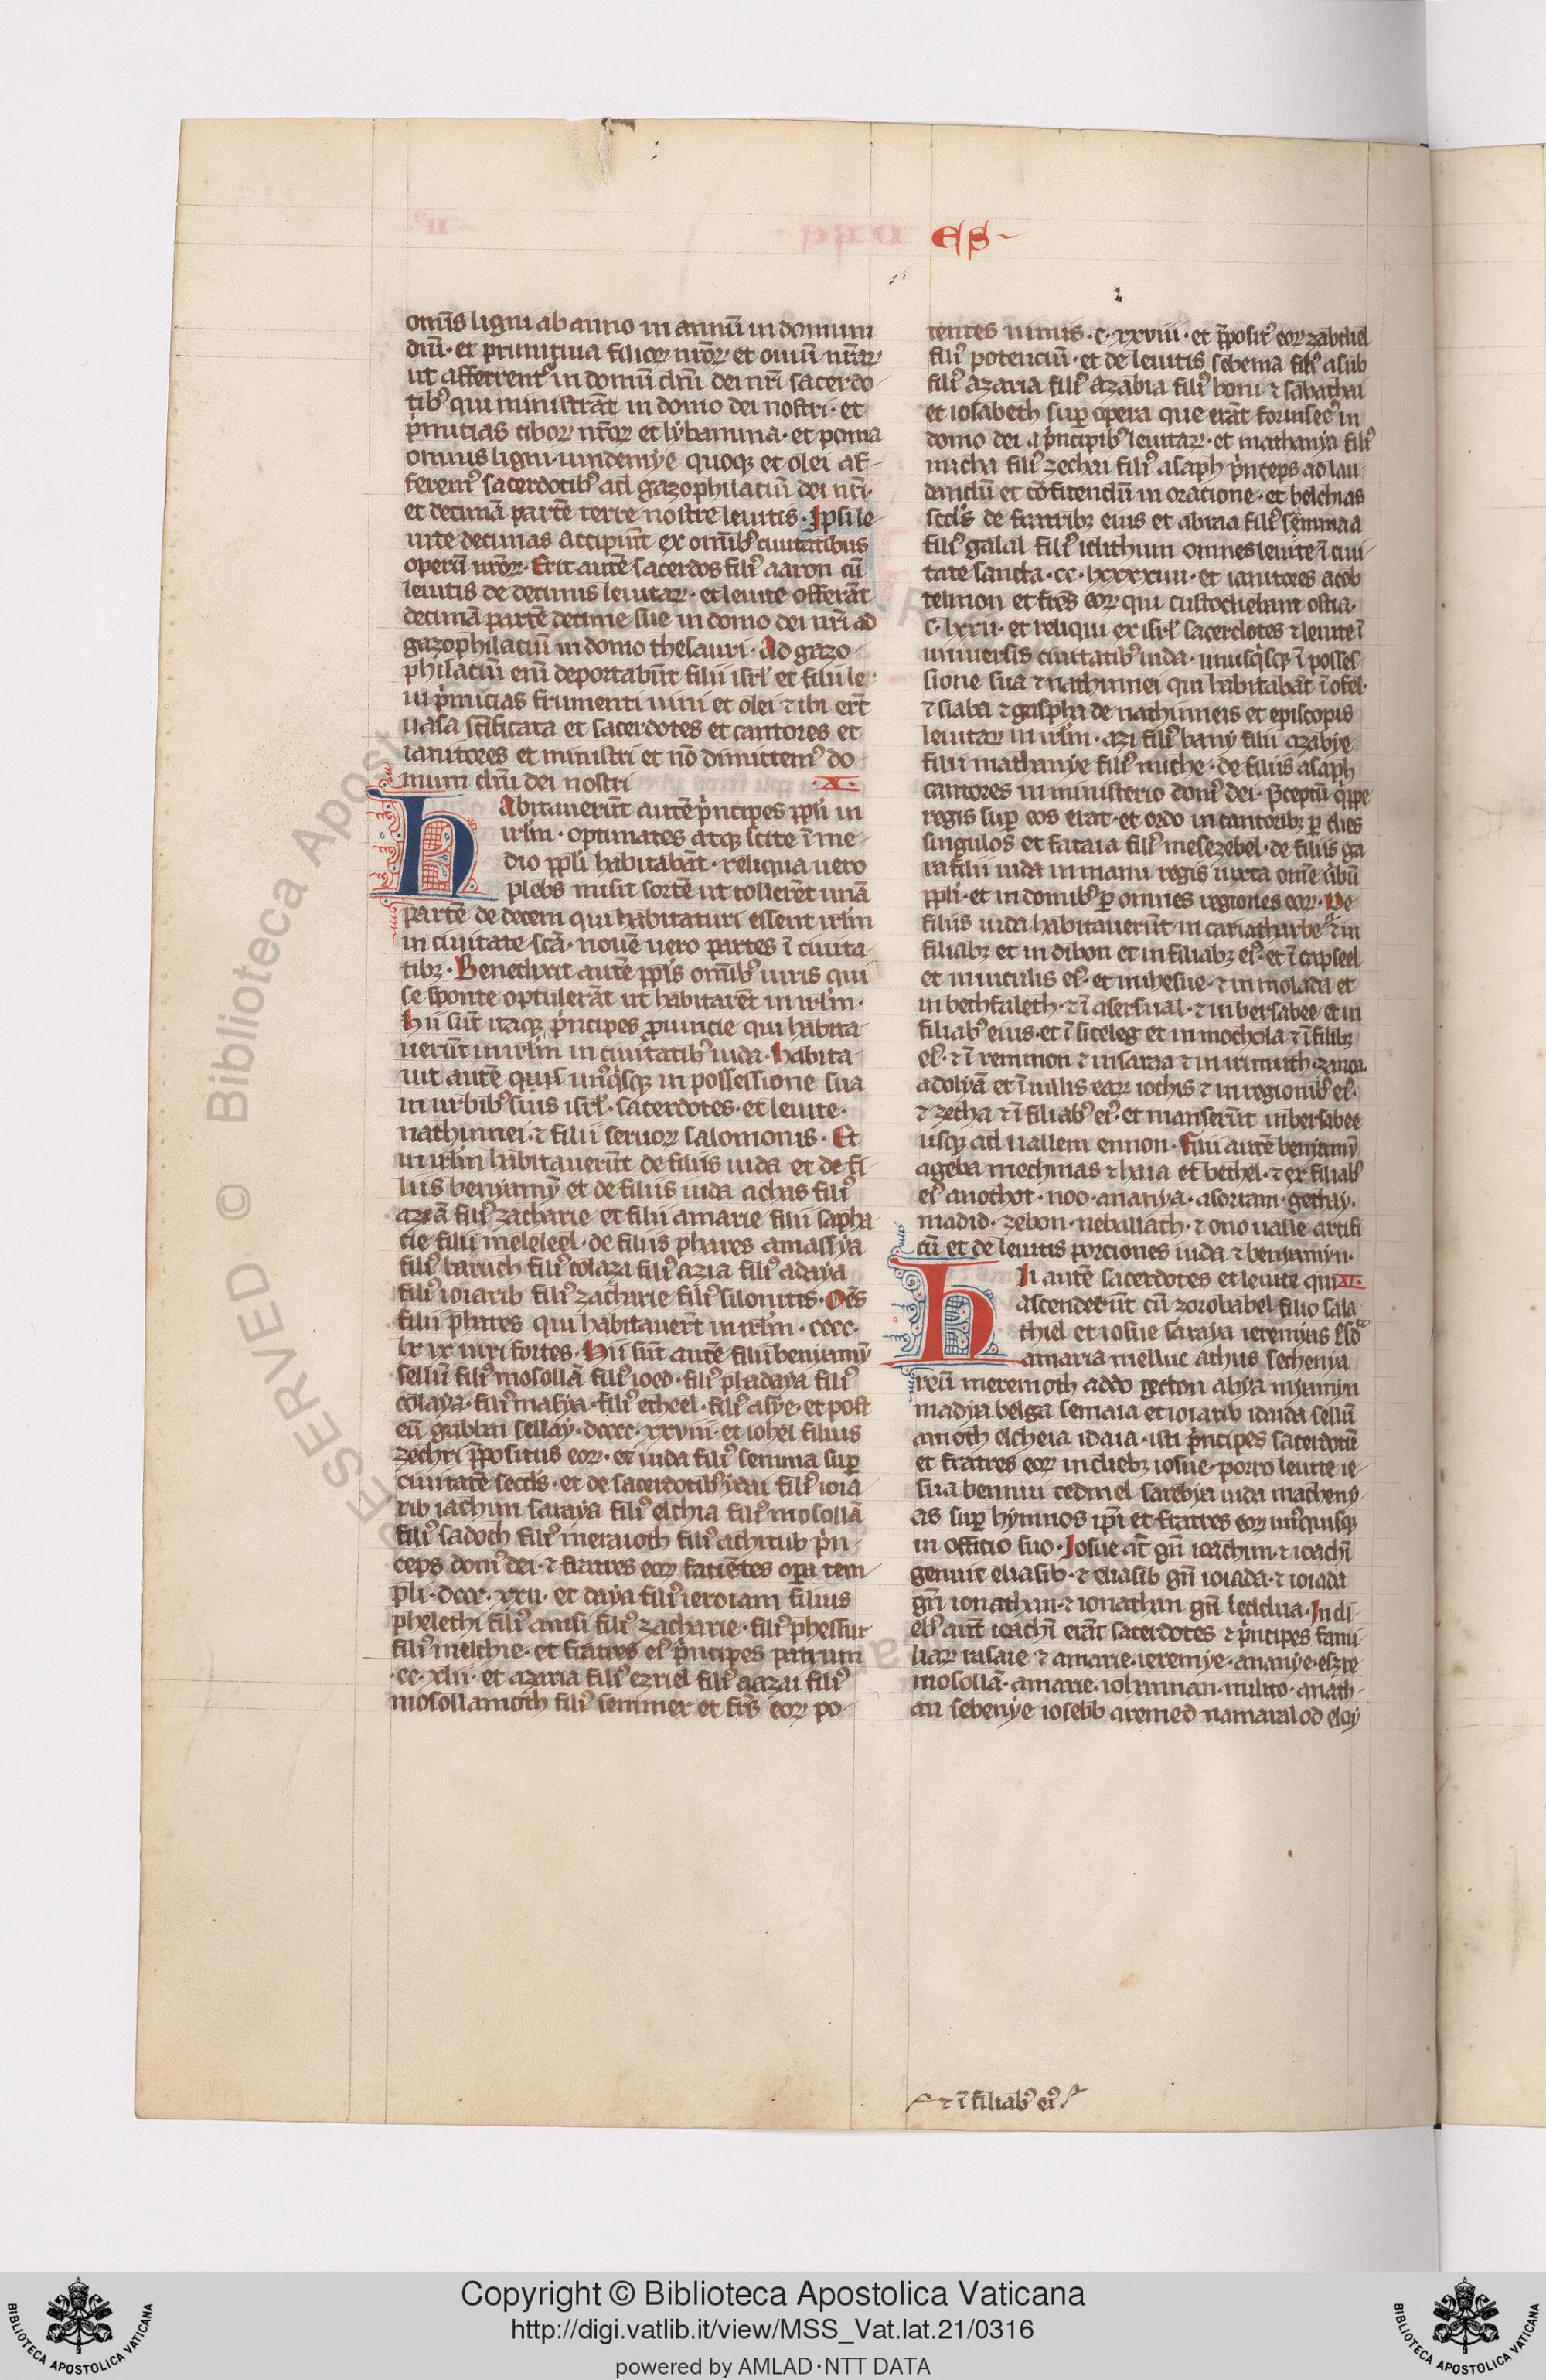 ES
omīs ligni ab anno in annū in domum
dnī · et primitiua filioꝝ nr̄oꝝ et ouiū nr̄aꝝ
ut afferrent᷑ in domū dnī dei nr̄i sacerdo
tibꝰ qui ministrāt in domo dei nostri · et
p̓mitias ciboꝝ nr̄oꝝ et lybamina · et poma
omnis ligni uindemye quoqꝫ et olei af
ferem᷒ sacerdotibꝰ ad gazophilaciū dei nr̄i ·
et decimā partē terre nostre leuitis · Ipsi le
uite decimas accipiūt ex omībꝰ ciuitatibus
operū nr̄oꝝ · Erit autē sacerdos filiꝰ aaron cū
leuitis de decimis leuitaꝝ · et leuite offerāt
decimā partē decime sue in domo dei nr̄i ad
gazophilaciū in domo thesauri · Ad gazo
philaciū enī deportabūt filii isrl̓ et filii le
ui p̓micias frumenti uini et olei ⁊ ibi erūt
uasa scīficata et sacerdotes et cantores et
ianitores et ministri et nō dimittemꝰ do
mum dnī dei nostri · X ·
hAbitauerūt autē p̓ncipes ppl̓i in
irl̄m · optimates atqꝫ scīte ī me
dio ppl̓i habitabāt · reliqua uero
plebs misit sortē ut tollerēt unā
partē de decem qui habitaturi essent irl̄m
in ciuitate scā · nouē uero partes ī ciuita
tibꝫ · Benedixit autē ppl̓s omībꝰ uiris qui
se sponte optulerāt ut habitarēt in irl̄m ·
Hii sūt itaqꝫ p̓ncipes ꝓuincie qui habita
uerūt in irl̄m in ciuitatibꝰ iuda · Habita
uit autē unꝰq̓sqꝫ in possessione sua
in urbibꝰ suis isrl̓ · sacerdotes · et leuite ·
nathinnei · ⁊ filii seruoꝝ salomonis · Et
in irl̄m habitauerūt de filiis iuda et de fi
liis benyamȳ et de filiis iuda achıs filiꝰ
azıā filiꝰ zacharie et filii amarie filii sapha
tie filii meleleel · de filiis phares amassya
filiꝰ baruch filiꝰ colaza filiꝰ azia filiꝰ adaya
filiꝰ ioiarib filiꝰ zacharie filiꝰ silonitis · Oēs
filii phares qui habitauerūt in irl̄m · cccc ·
lx ıx uiri fortes · Hii sūt autē filii benyamȳ
sellū filiꝰ mosollā filiꝰ ioed · filiꝰ phadaya filiꝰ
colaya · filiꝰ masya · filiꝰ etheel · filiꝰ asye · et post
eū gabbai sellay · dcccc · xxviii · et iohel filius
zechri p̄positus eoꝝ · et iuda filiꝰ senma suꝑ
ciuitatē secd̓s · et de sacerdotibꝰ ydai filiꝰ ioia
rib iachim saraya filiꝰ elchia filiꝰ mosollā
filiꝰ sadoch filiꝰ meraioth filiꝰ achitub p̓n
ceps domꝰ dei · ⁊ fratres eoꝝ faciētes oꝑa tem
pli · dccc · xxii · et daya filiꝰ ieroiam filius
phelethi filiꝰ amsi filiꝰ zacharie · filiꝰ phessur
filiꝰ melchie · et fratres eiꝰ p̓ncipes patrum
· cc · xlii · et azaria filiꝰ ezriel filiꝰ aazai filiꝰ
mosollamoth filiꝰ semmer et frēs eoꝝ po
tentes nimis · c · xxviii · et p̄positꝰ eoꝝ zabdiel
filiꝰ potenciū · et de leuitis sebenia filiꝰ asub
filiꝰ azaria filiꝰ azabia filiꝰ boni ⁊ sabathai
et iosabeth suꝑ opera que erāt forinsecꝰ in
domo dei a p̓ncipibꝰ leuitaꝝ · et mathanya filiꝰ
micha filiꝰ zechai filiꝰ asaph p̓nceps ad lau
dandū et cōfitendū in oracione · et belchias
secd̓s de fratribꝫ eius et abiaa filiꝰ semmaa
filiꝰ galal filiꝰ idithum omnes leuite ī ciui
tate sancta · cc · lxxxxiiii · et ianitores acob
telmon et frēs eoꝝ qui custodiebant ostia ·
c · lxxii · et reliqui ex isrl̓ sacerdotes ⁊ leuite ī
uniuersis ciuitatibꝰ iuda · unusq̓sqꝫ ī posses
sione sua ⁊ nathinnei qui habitabāt ī ofel ·
⁊ siaba ⁊ gaspha de nathinneis et episcopis
leuitaꝝ in irl̄m · azi filiꝰ bany filii azabye
filii mathanye filiꝰ miche · de filiis asaph
cantores in ministerio domꝰ dei · p̄ceptū q̓ppe
regis suꝑ eos erat · et ordo in cantoribꝫ ꝑ dies
singulos et fataia filiꝰ mesezebel · de filiis za
ra filii iuda in manu regis iuxta om̄e ūbū
ppl̓i · et in domibꝰ ꝑ omnes regiones eoꝝ · De
filiis iuda habitauerūt in cariatharbe ⁊ in
filiabꝫ et in dibon et in filiabꝫ eiꝰ · et ī capseel
et in uiculis eiꝰ · et in ihesue · ⁊ in molada et
in bethfaleth · ⁊ ī asersual · ⁊ in bersabee et in
filiabꝰ eius · et ī siceleg et in mochola ⁊ ī filibꝫ
eiꝰ · ⁊ ī remmon ⁊ in saraa ⁊ in irimuth · zanoa
adolyā et ī uillis eaꝝ lochis ⁊ in regionibꝰ eiꝰ ·
⁊ zecha ⁊ ī filiabꝰ eiꝰ · et manserūt in bersabee
usqꝫ ad uallem ennon · Filii autē benyamȳ
ageba mechmas ⁊ haia et bethel · ⁊ ex filiabꝰ
eiꝰ anothot · noo · ananya · asoriam · gethay ·
madid · zebon · neballath · ⁊ ono ualle artifi
cū et de leuitis porciones iuda ⁊ benyamyn ·
hIi autē sacerdotes et leuite qui XI ·
ascenderūt cū zorobabel filio sala
thiel et iosue saraya ieremyas esdᵃ
amaria melluc athus sechenya
reū meremoth addo gecton abya myamyn
madya belga semaia et ioiarib idaida sellū
amoth elcheia idaia · isti p̓ncipes sacerdotū
et fratres eoꝝ in diebꝫ iosue · porro leuite ie
sua bennui cedmel sarebya iuda matheny
as suꝑ hymnos ip̄i et fratres eoꝝ unꝰquisqꝫ
in officio suo · Iosue aūt gn̄ ioachim · ⁊ ioachī
genuit eliasib · ⁊ eliasib gn̄ ioiada · ⁊ ioiada
gn̄ ionathan · ⁊ ionathan gn̄ leddua · In di
ebꝰ aūt ioachī erāt sacerdotes ⁊ p̓ncipes fami
liaꝝ rasaie ⁊ amarie · ieremye · ananye · elzre
mosollā · amarie · iohannan · milito · anath
an sebenye iosebb aremed namaralod elcy
⁊ ī filiabꝰ eiꝰ
Copyright © Biblioteca Apostolica Vaticana
http://digi.vatlib.it/view/MSS_Vat.lat.21/0316
powered by AMLAD·NTT DATA